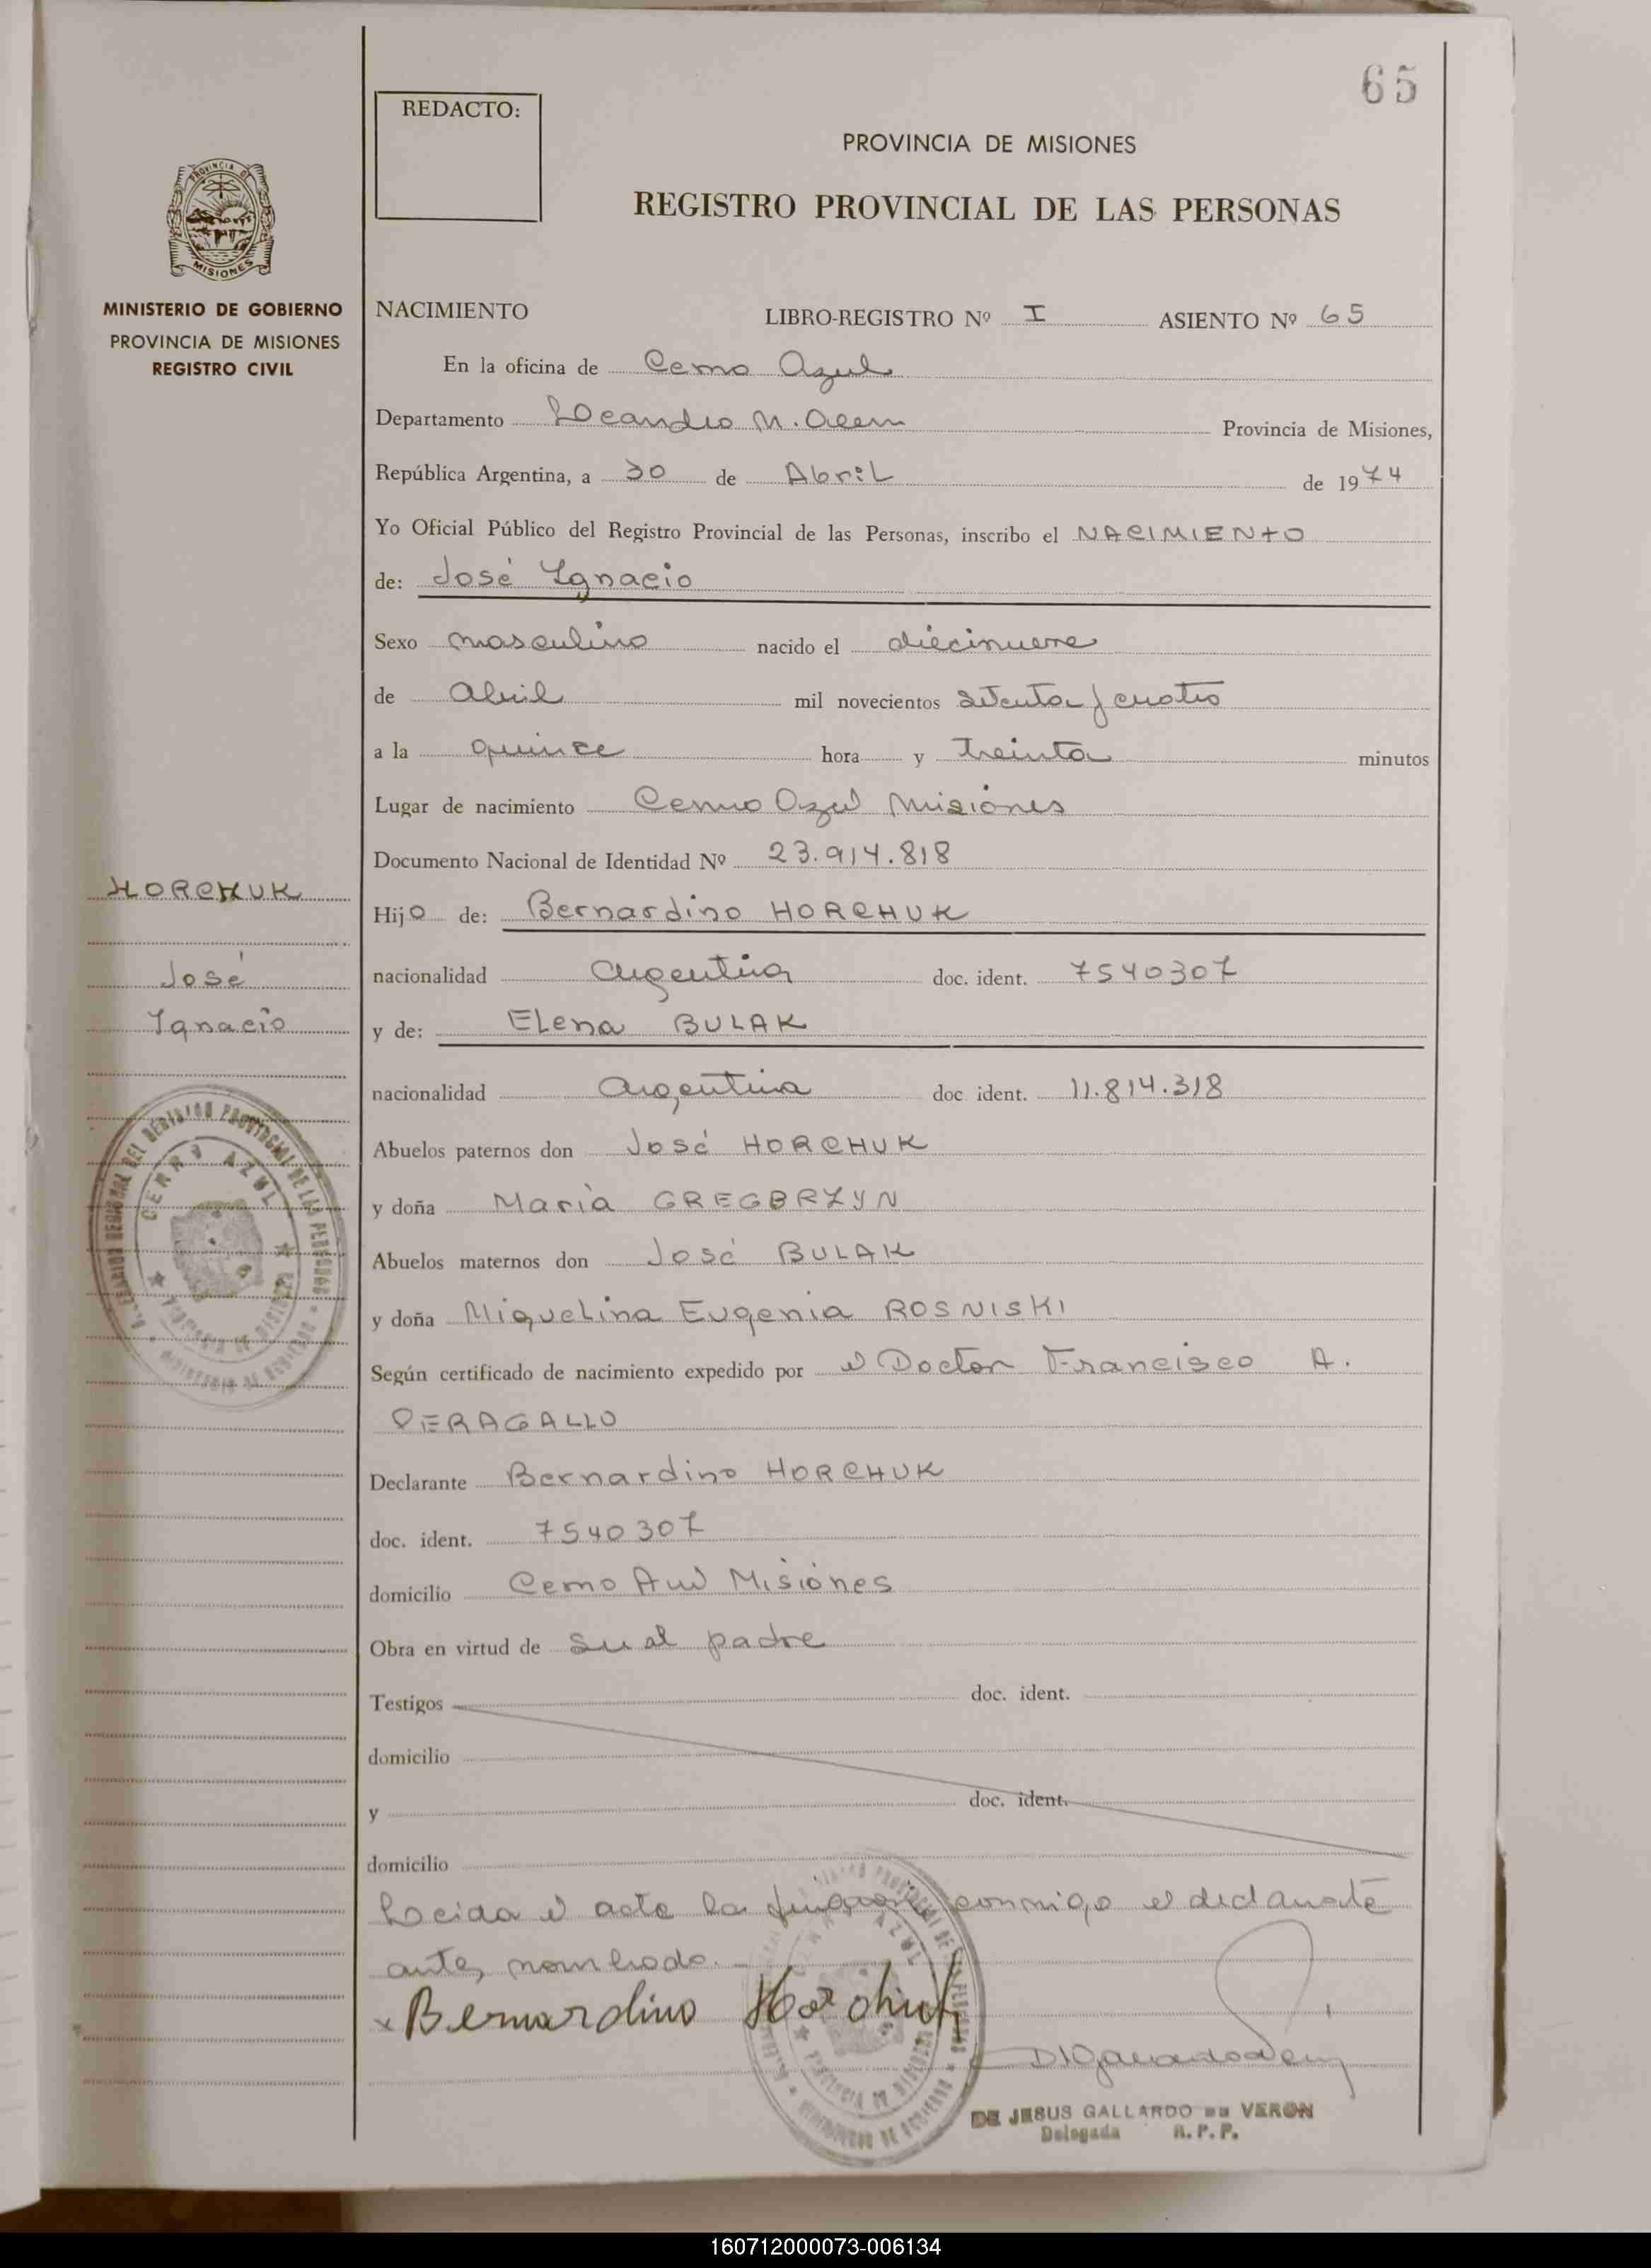 65
REDACTO:
PROVINCIA DE MISIONES
REGISTRO PROVINCIAL DE LAS PERSONAS
PROVINCIA DE
MISIONES
MINISTERIO DE GOBIERNO
PROVINCIA DE MISIONES
REGISTRO CIVIL
NACIMIENTO LIBRO-REGISTRO Nº I ASIENTO Nº 65
En la oficina de Cerro Azul
Departamento Leandro N. Alem Provincia de Misiones,
República Argentina, a 30 de Abril de 1974
Yo Oficial Público del Registro Provincial de las Personas, inscribo el NACIMIENTO
de: José Ignacio
Sexo masculino nacido el diecinueve
de abril mil novecientos setenta y cuatro
a la quince hora y treinta minutos
Lugar de nacimiento Cerro Azul Misiones
Documento Nacional de Identidad Nº 23.914.818
HORCHUK
José
Ignacio
Hijo de: Bernardino HORCHUK
nacionalidad argentina doc. ident. 7540307
y de: Elena BULAK
nacionalidad argentina doc ident. 11.814.318
Abuelos paternos don José HORCHUK
y doña María GREGBRZYN
Abuelos maternos don José BULAK
y doña Miquelina Eugenia ROSNISKI
Según certificado de nacimiento expedido por el Doctor Francisco A.
PERAGALLO
Declarante Bernardino HORCHUK
doc. ident. 7540307
domicilio Cerro Azul Misiones
Obra en virtud de padre
Testigos doc. ident.
domicilio
y doc. ident.
domicilio
Leida el acta la conmigo el declarante
antes nombrado.
x Bernardino Horchuk
CERRO AZUL
DE JESUS GALLARDO DE VERON
Delegada R.P.P.
160712000073-006134